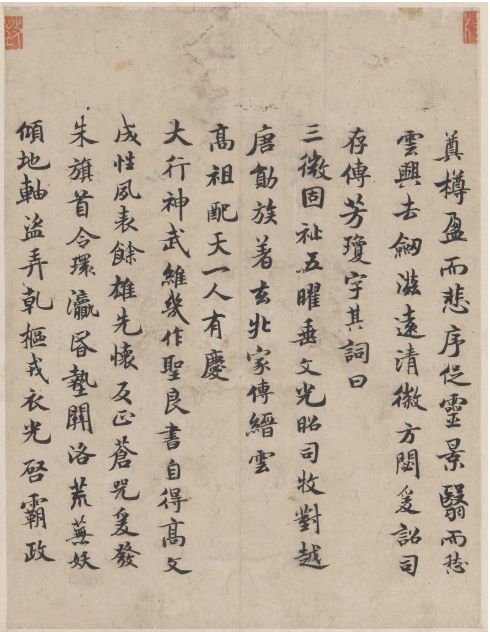 奠樽盈而悲序促靈景翳而愁
雲興去劒滋遠清徽方閟爰詔司
存傳芳瓊字其詞曰
三徽固祉五曜垂文光昭司牧對越
唐勛族著玄牝家傳縉雲
高祖配天一人有慶
大行神武維幾作聖良書自得高文
成性夙表餘雄先懷反正蒼兕爰發
朱旗首令環瀛昏墊關洛荒蕪妖
傾地軸盜弄乾樞戎衣光啓霸政